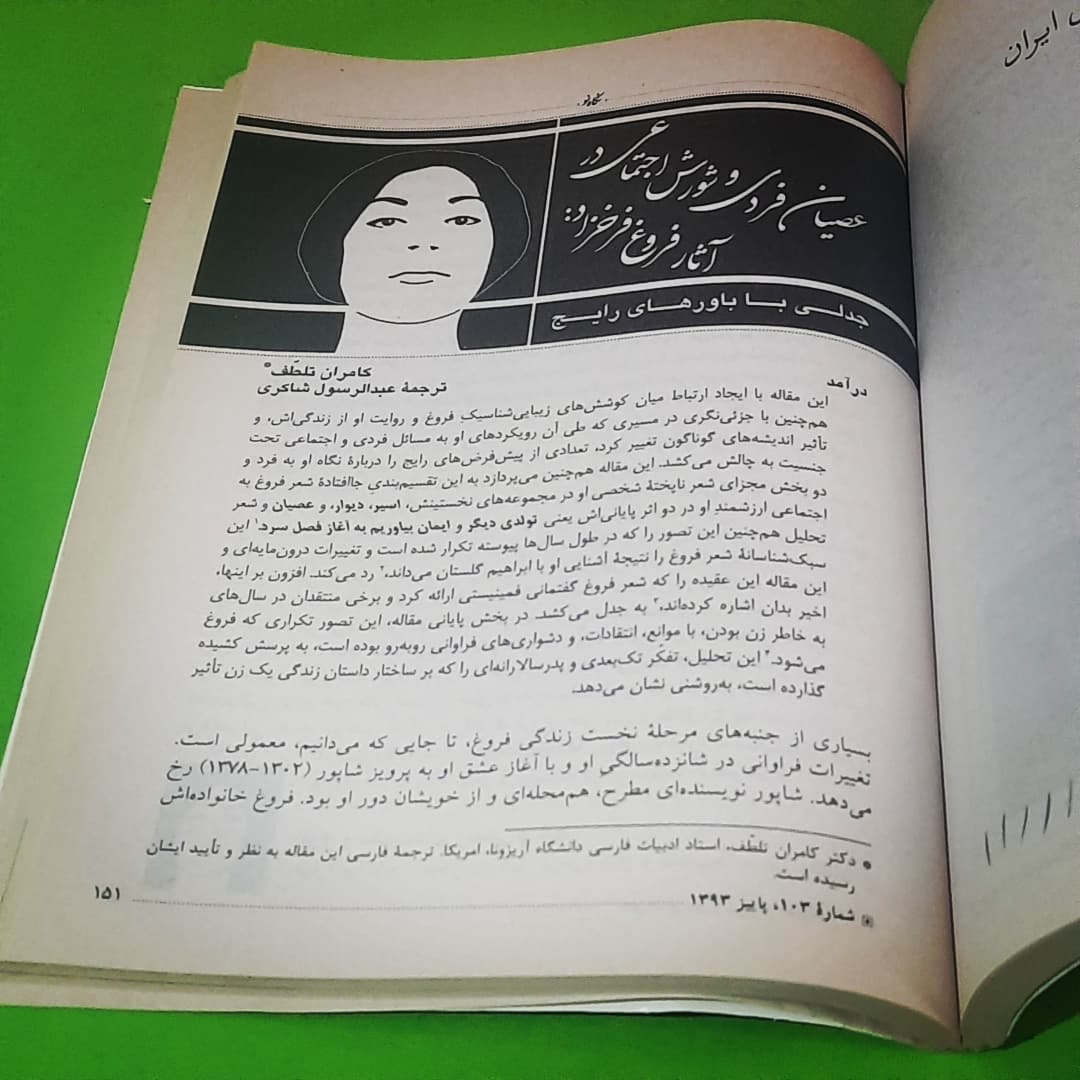 نگاه نو
عصیان فردی و شورش اجتماعی در
آثار فروغ فرخزاد:
جدلی با باورهای رایج
کامران تلطّف*
ترجمهٔ عبدالرسول شاکری
درآمد
این مقاله با ایجاد ارتباط میان کوشش‌های زیبایی‌شناسیک فروغ و روایت او از زندگی‌اش، و
هم‌چنین با جزئی‌نگری در مسیری که طی آن رویکردهای او به مسائل فردی و اجتماعی تحت
تأثیر اندیشه‌های گوناگون تغییر کرد، تعدادی از پیش‌فرض‌های رایج را دربارهٔ نگاه او به فرد و
جنسیت به چالش می‌کشد. این مقاله هم‌چنین می‌پردازد به این تقسیم‌بندیِ جاافتادهٔ شعر فروغ به
دو بخش مجزای شعر ناپختهٔ شخصی او در مجموعه‌های نخستینش، اسیر، دیوار، و عصیان و شعر
اجتماعی ارزشمندِ او در دو اثر پایانی‌اش یعنی تولدی دیگر و ایمان بیاوریم به آغاز فصل سرد.۱ این
تحلیل هم‌چنین این تصور را که در طول سال‌ها پیوسته تکرار شده است و تغییرات درون‌مایه‌ای و
سبک‌شناسانهٔ شعر فروغ را نتیجهٔ آشنایی او با ابراهیم گلستان می‌داند،۲ رد می‌کند. افزون بر اینها،
این مقاله این عقیده را که شعر فروغ گفتمانی فمینیستی ارائه کرد و برخی منتقدان در سال‌های
اخیر بدان اشاره کرده‌اند،۳ به جدل می‌کشد. در بخش پایانی مقاله، این تصور تکراری که فروغ
به خاطر زن بودن، با موانع، انتقادات، و دشواری‌های فراوانی روبه‌رو بوده است، به پرسش کشیده
می‌شود.۴ این تحلیل، تفکّر تک‌بعدی و پدرسالارانه‌ای را که بر ساختار داستان زندگی یک زن تأثیر
گذارده است، به‌روشنی نشان می‌دهد.
بسیاری از جنبه‌های مرحلهٔ نخست زندگی فروغ، تا جایی که می‌دانیم، معمولی است.
تغییرات فراوانی در شانزده‌سالگیِ او و با آغاز عشق او به پرویز شاپور (۱۳۰۲-۱۳۷۸) رخ
می‌دهد. شاپور نویسنده‌ای مطرح، هم‌محله‌ای و از خویشان دور او بود. فروغ خانواده‌اش
* دکتر کامران تلطّف، استاد ادبیات فارسی دانشگاه آریزونا، امریکا. ترجمهٔ فارسی این مقاله به نظر و تأیید ایشان
رسیده است.
شمارهٔ ۱۰۳، پاییز ۱۳۹۳
۱۵۱
ایران